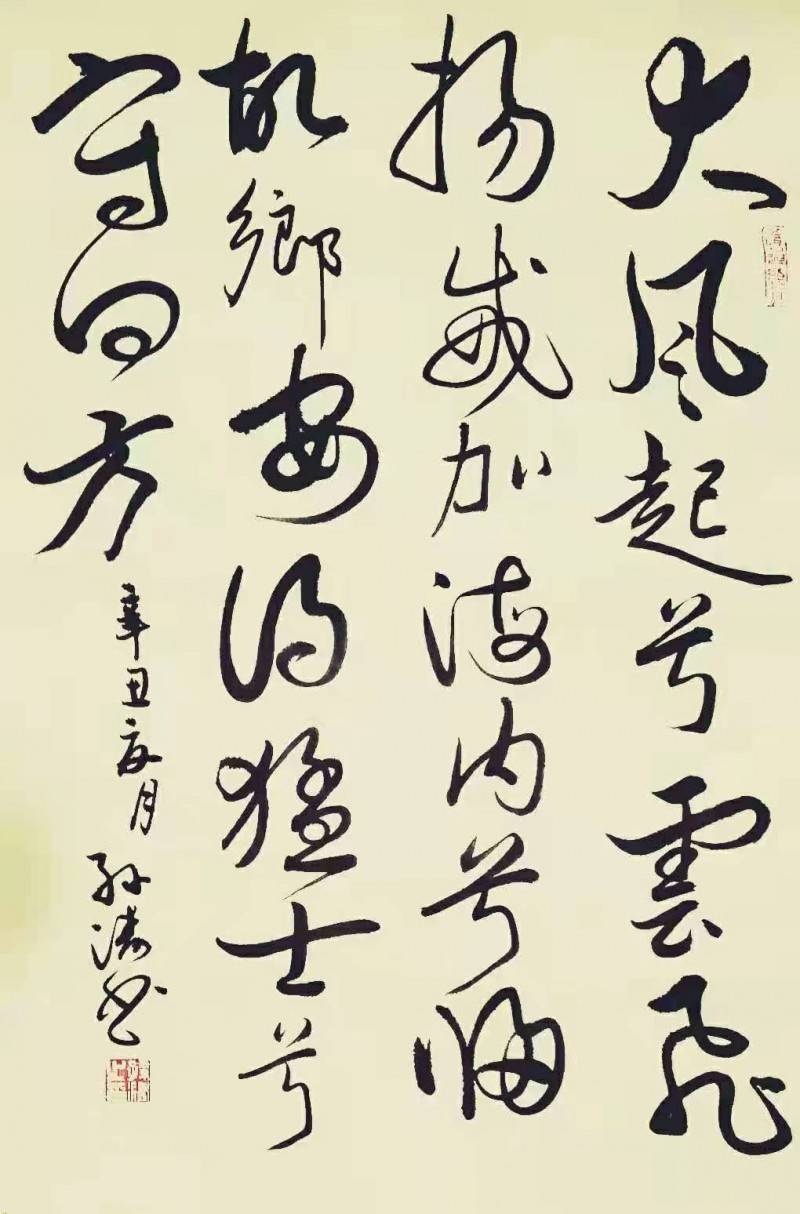 大風起兮雲飛
揚威加海内兮歸
故鄉安得猛士兮
守四方
辛丑夏月 孙涛书